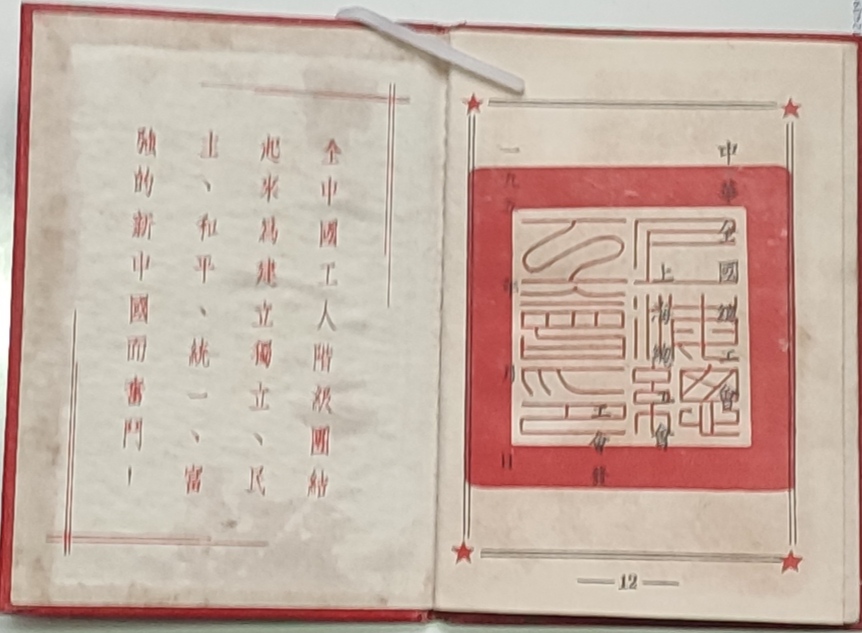 全中國工人階級團結
起來爲建立獨立、民
主、和平、統一、富
強的新中國而奮鬥！
中華全國總工會
上海總工會
工會發
一九五 年 月 日
上海總工會印
12